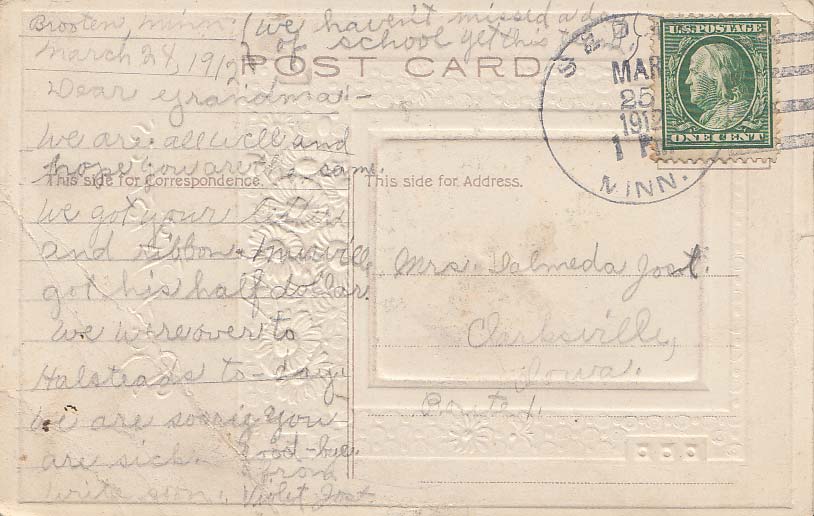 Brooten, Minn. (we haven't missed a da
March 24, 1912 of school yet this
POST CARD
U.S. POSTAGE
ONE CENT
MAR
25
1912
1 P
MINN.
Dear Grandma:-
We are all well and
hope you are the same.
This side for Correspondence.
This side for Address.
We got your letter
and ribbon
got his half dollar.
We were over to
Halsteads to-day.
We are sorrig you
are sick. Good-bye
from
write soon. Violet Jost
Mrs. Dalmeda Jost.
Clarksville,
Iowa.
Route 1.